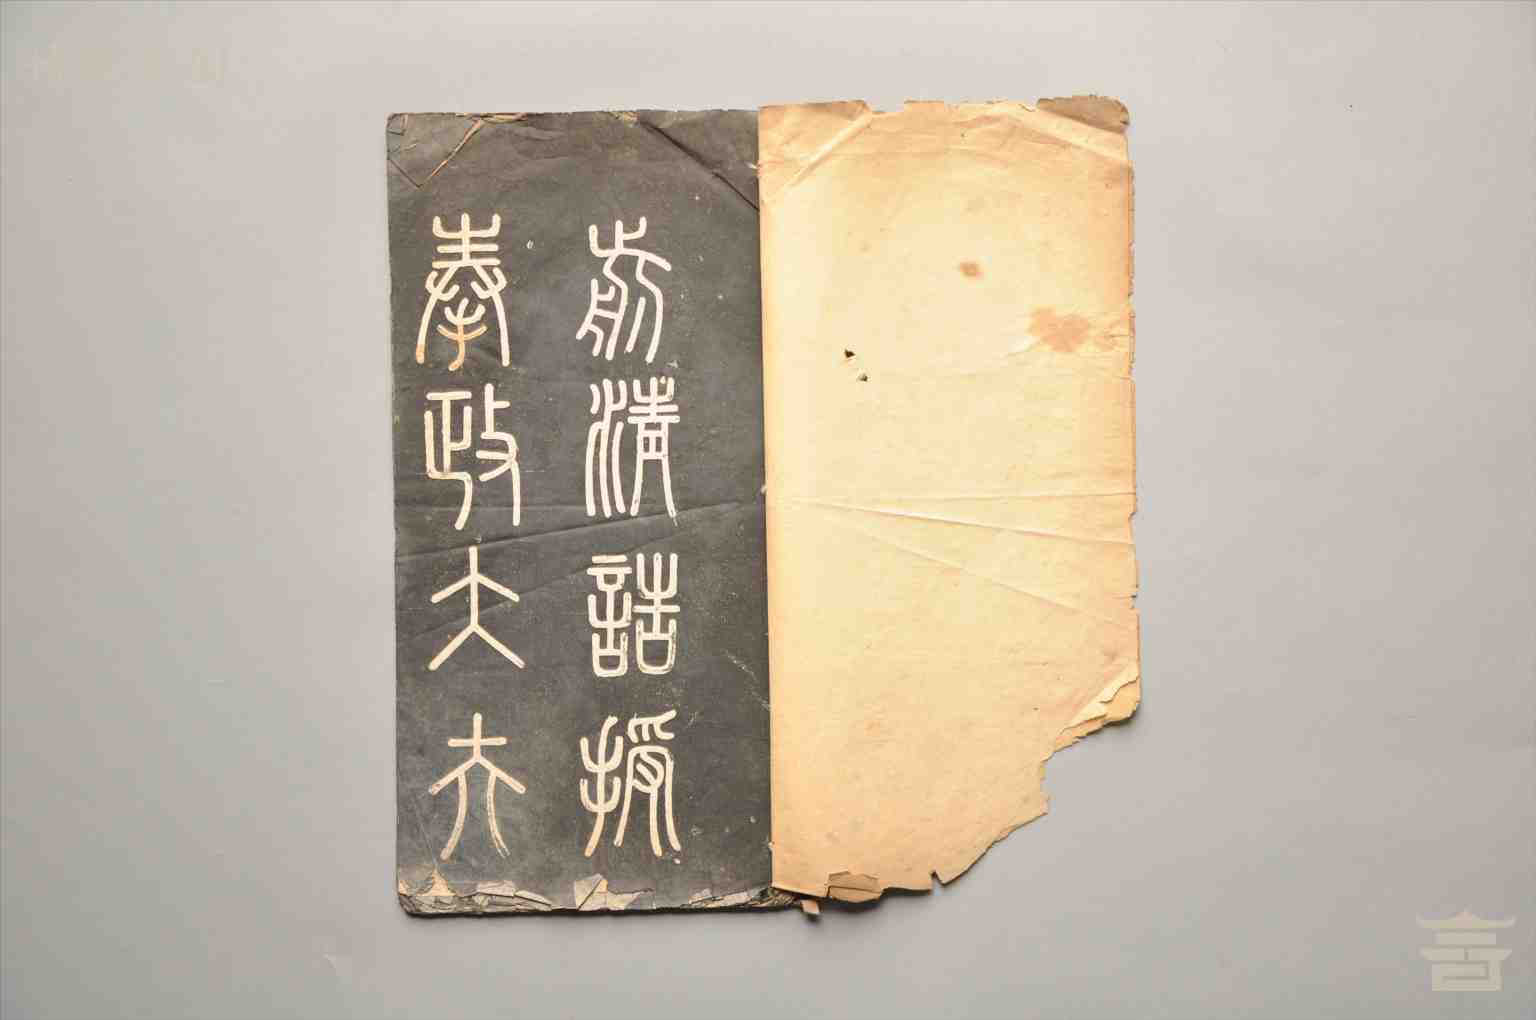 前清誥授
奉政大夫